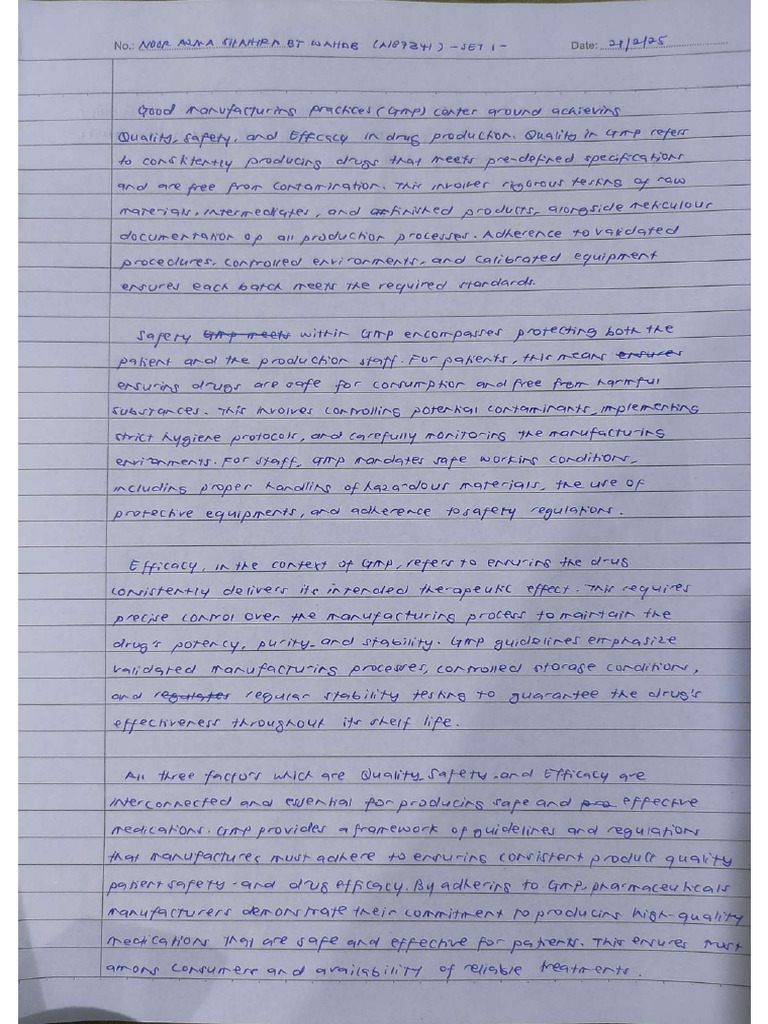 No.: NOOR ASMA SHAHIRA BT WAHAB (A187341) - SET 1 - Date: 21/2/25
Good manufacturing practices (GMP) center around achieving
Quality, Safety, and Efficacy in drug production. Quality in GMP refers
to consistently producing drugs that meets pre-defined specifications
and are free from contamination. This involves rigorous testing of raw
materials, intermediates, and finished products, alongside meticulous
documentation of all production processes. Adherence to validated
procedures, controlled environments, and calibrated equipment
ensures each batch meets the required standards.
Safety GMP meets within GMP encompasses protecting both the
patient and the production staff. For patients, this means ensures
ensuring drugs are safe for consumption and free from harmful
substances. This involves controlling potential contaminants, implementing
strict hygiene protocols, and carefully monitoring the manufacturing
environments. For staff, GMP mandates safe working conditions,
including proper handling of hazardous materials, the use of
protective equipments, and adherence to safety regulations.
Efficacy, in the context of GMP, refers to ensuring the drug
consistently delivers its intended therapeutic effect. This requires
precise control over the manufacturing process to maintain the
drug's potency, purity, and stability. GMP guidelines emphasize
validated manufacturing processes, controlled storage conditions,
and regulates regular stability testing to guarantee the drug's
effectiveness throughout its shelf life.
All three factors which are Quality, Safety, and Efficacy are
interconnected and essential for producing safe and pro effective
medications. GMP provides a framework of guidelines and regulations
that manufactures must adhere to ensuring consistent product quality
patient safety, and drug efficacy. By adhering to GMP, pharmaceuticals
manufacturers demonstrate their commitment to producing high-quality
medications that are safe and effective for patients. This ensures trust
among consumers and availability of reliable treatments.